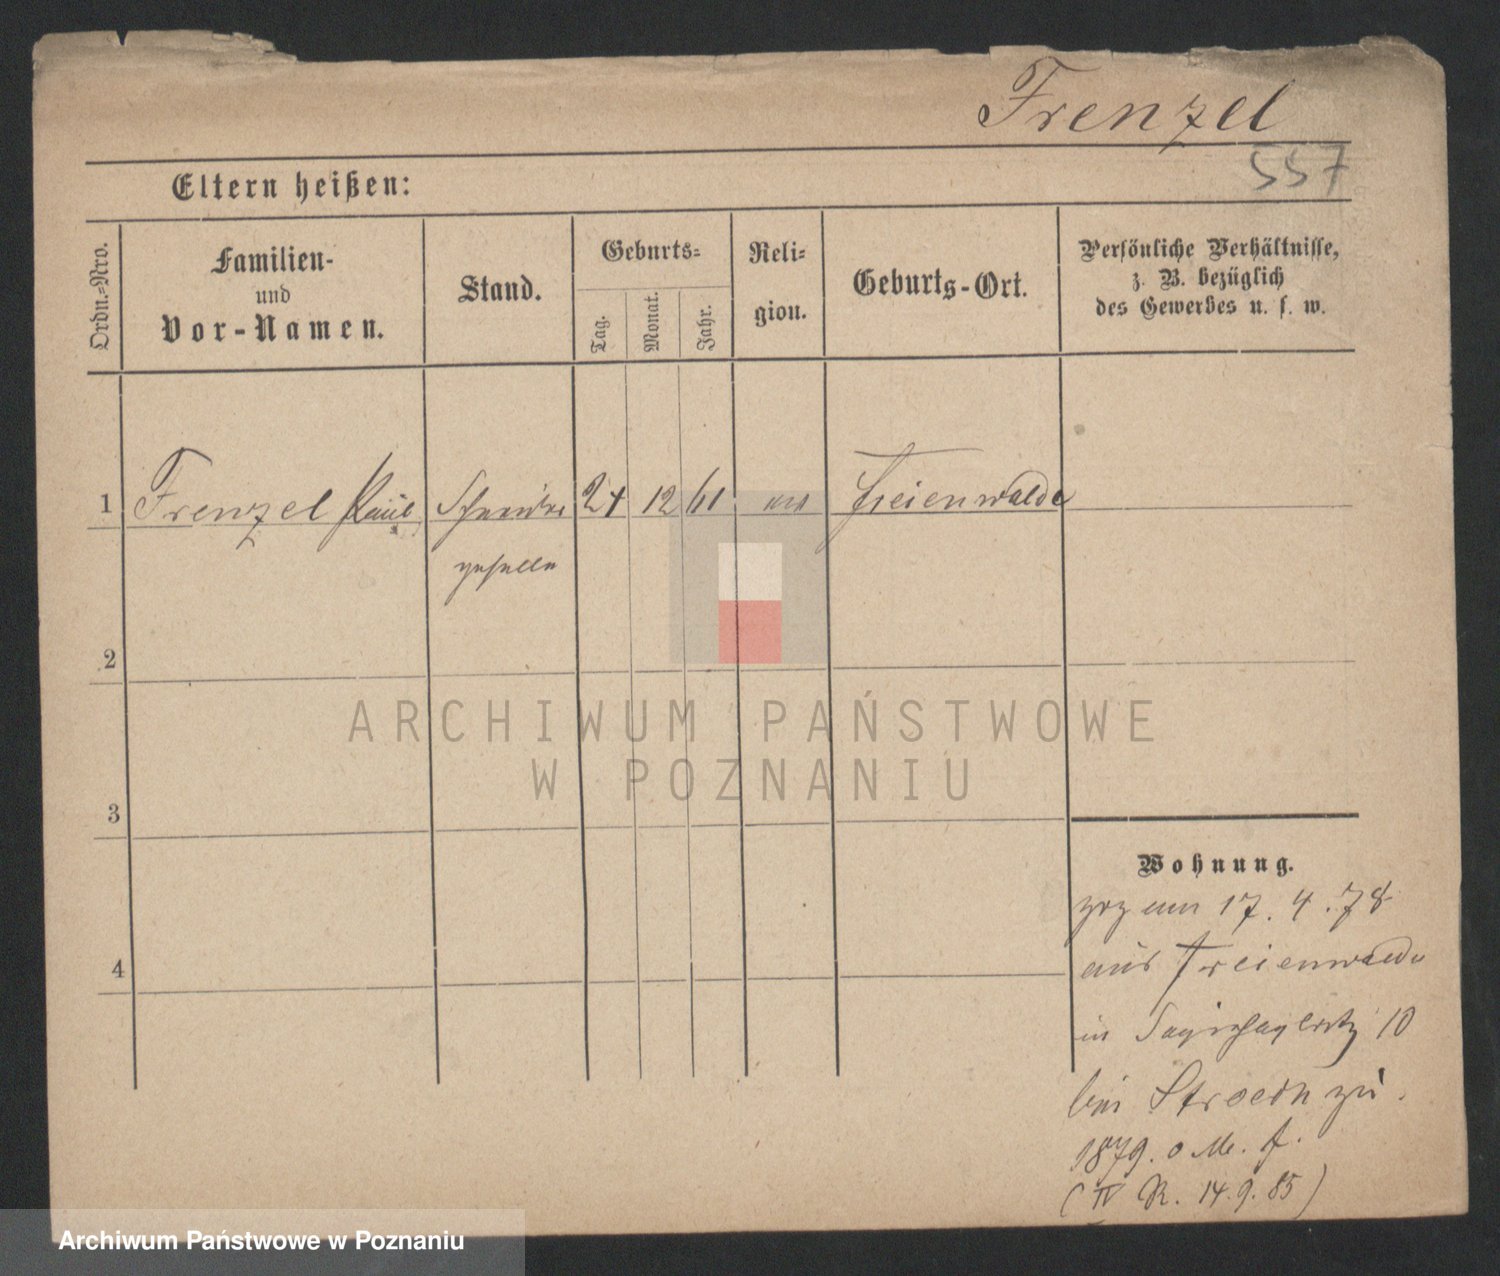 Frenzel
557
Eltern heißen:
Ordn.-Nro.
Familien-
und
Vor-Namen.
Stand.
Geburts-
Tag.
Monat.
Jahr.
Reli-
gion.
Geburts-Ort.
Persönliche Verhältnisse,
z. B. bezüglich
des Gewerbes u. s. w.
1 Frenzel Paul 12 61 Freienwalde
geselle
2
3
4
Wohnung.
17. 4. 78
aus Freienwalde
in 10
bei zu.
1879. o Me. f.
(IV R. 14.9.85)
ARCHIWUM PAŃSTWOWE
W POZNANIU
Archiwum Państwowe w Poznaniu